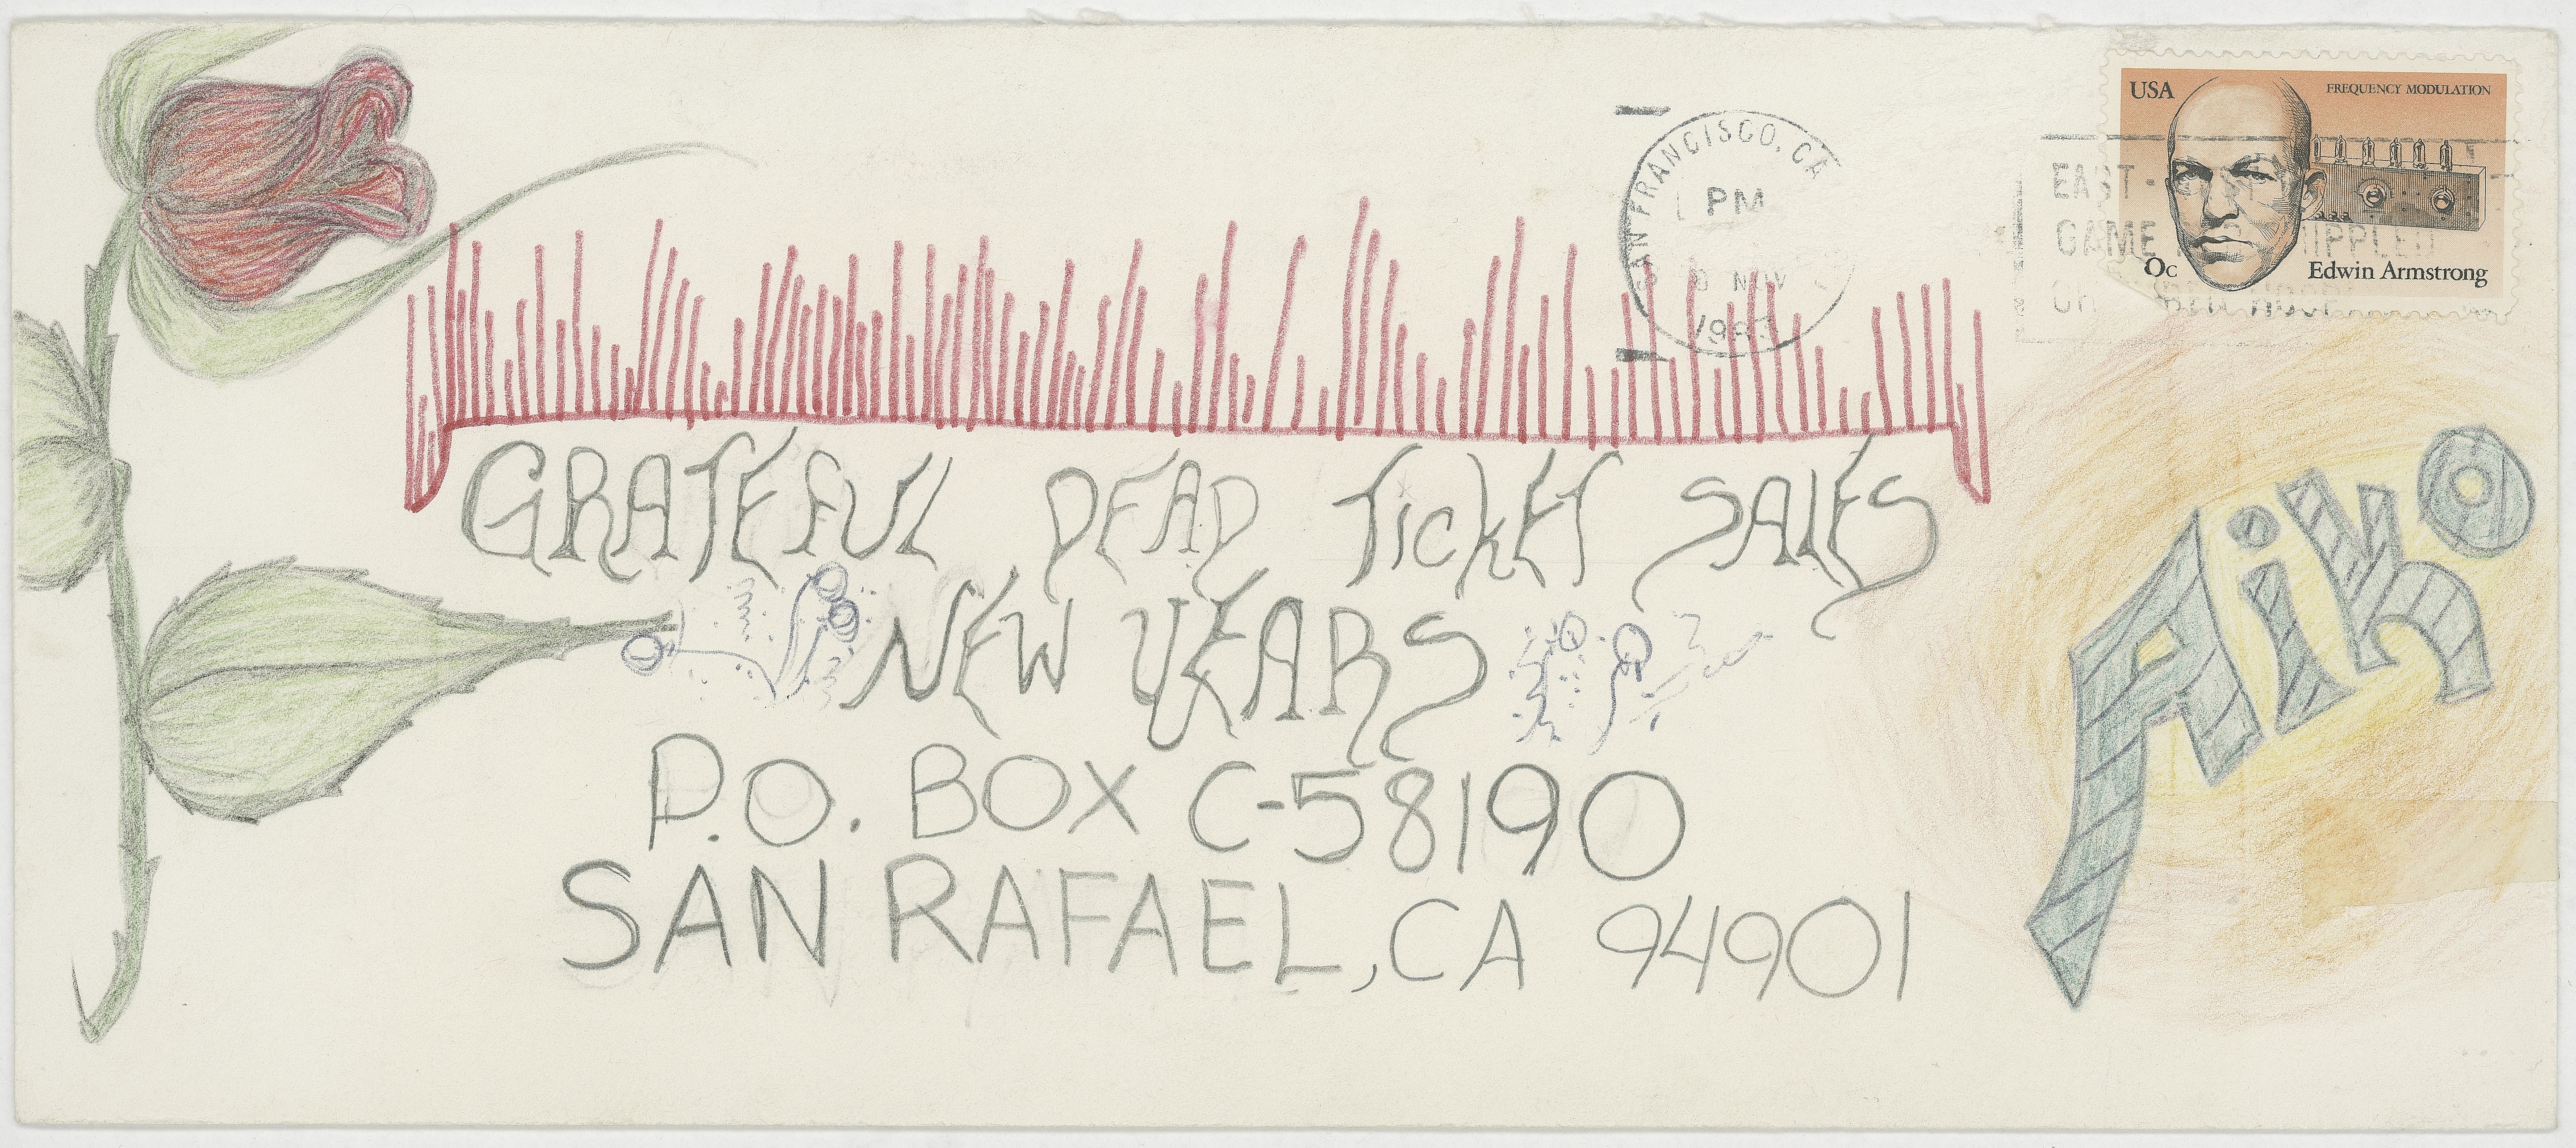 USA FREQUENCY MODULATION
Edwin Armstrong
SAN FRANCISCO, CA
PM
NOV
EAST-
GAME
GRATEFUL DEAD TickET SALES
NEW YEARS
P.O. BOX C-58190
SAN RAFAEL, CA 94901
Aiko